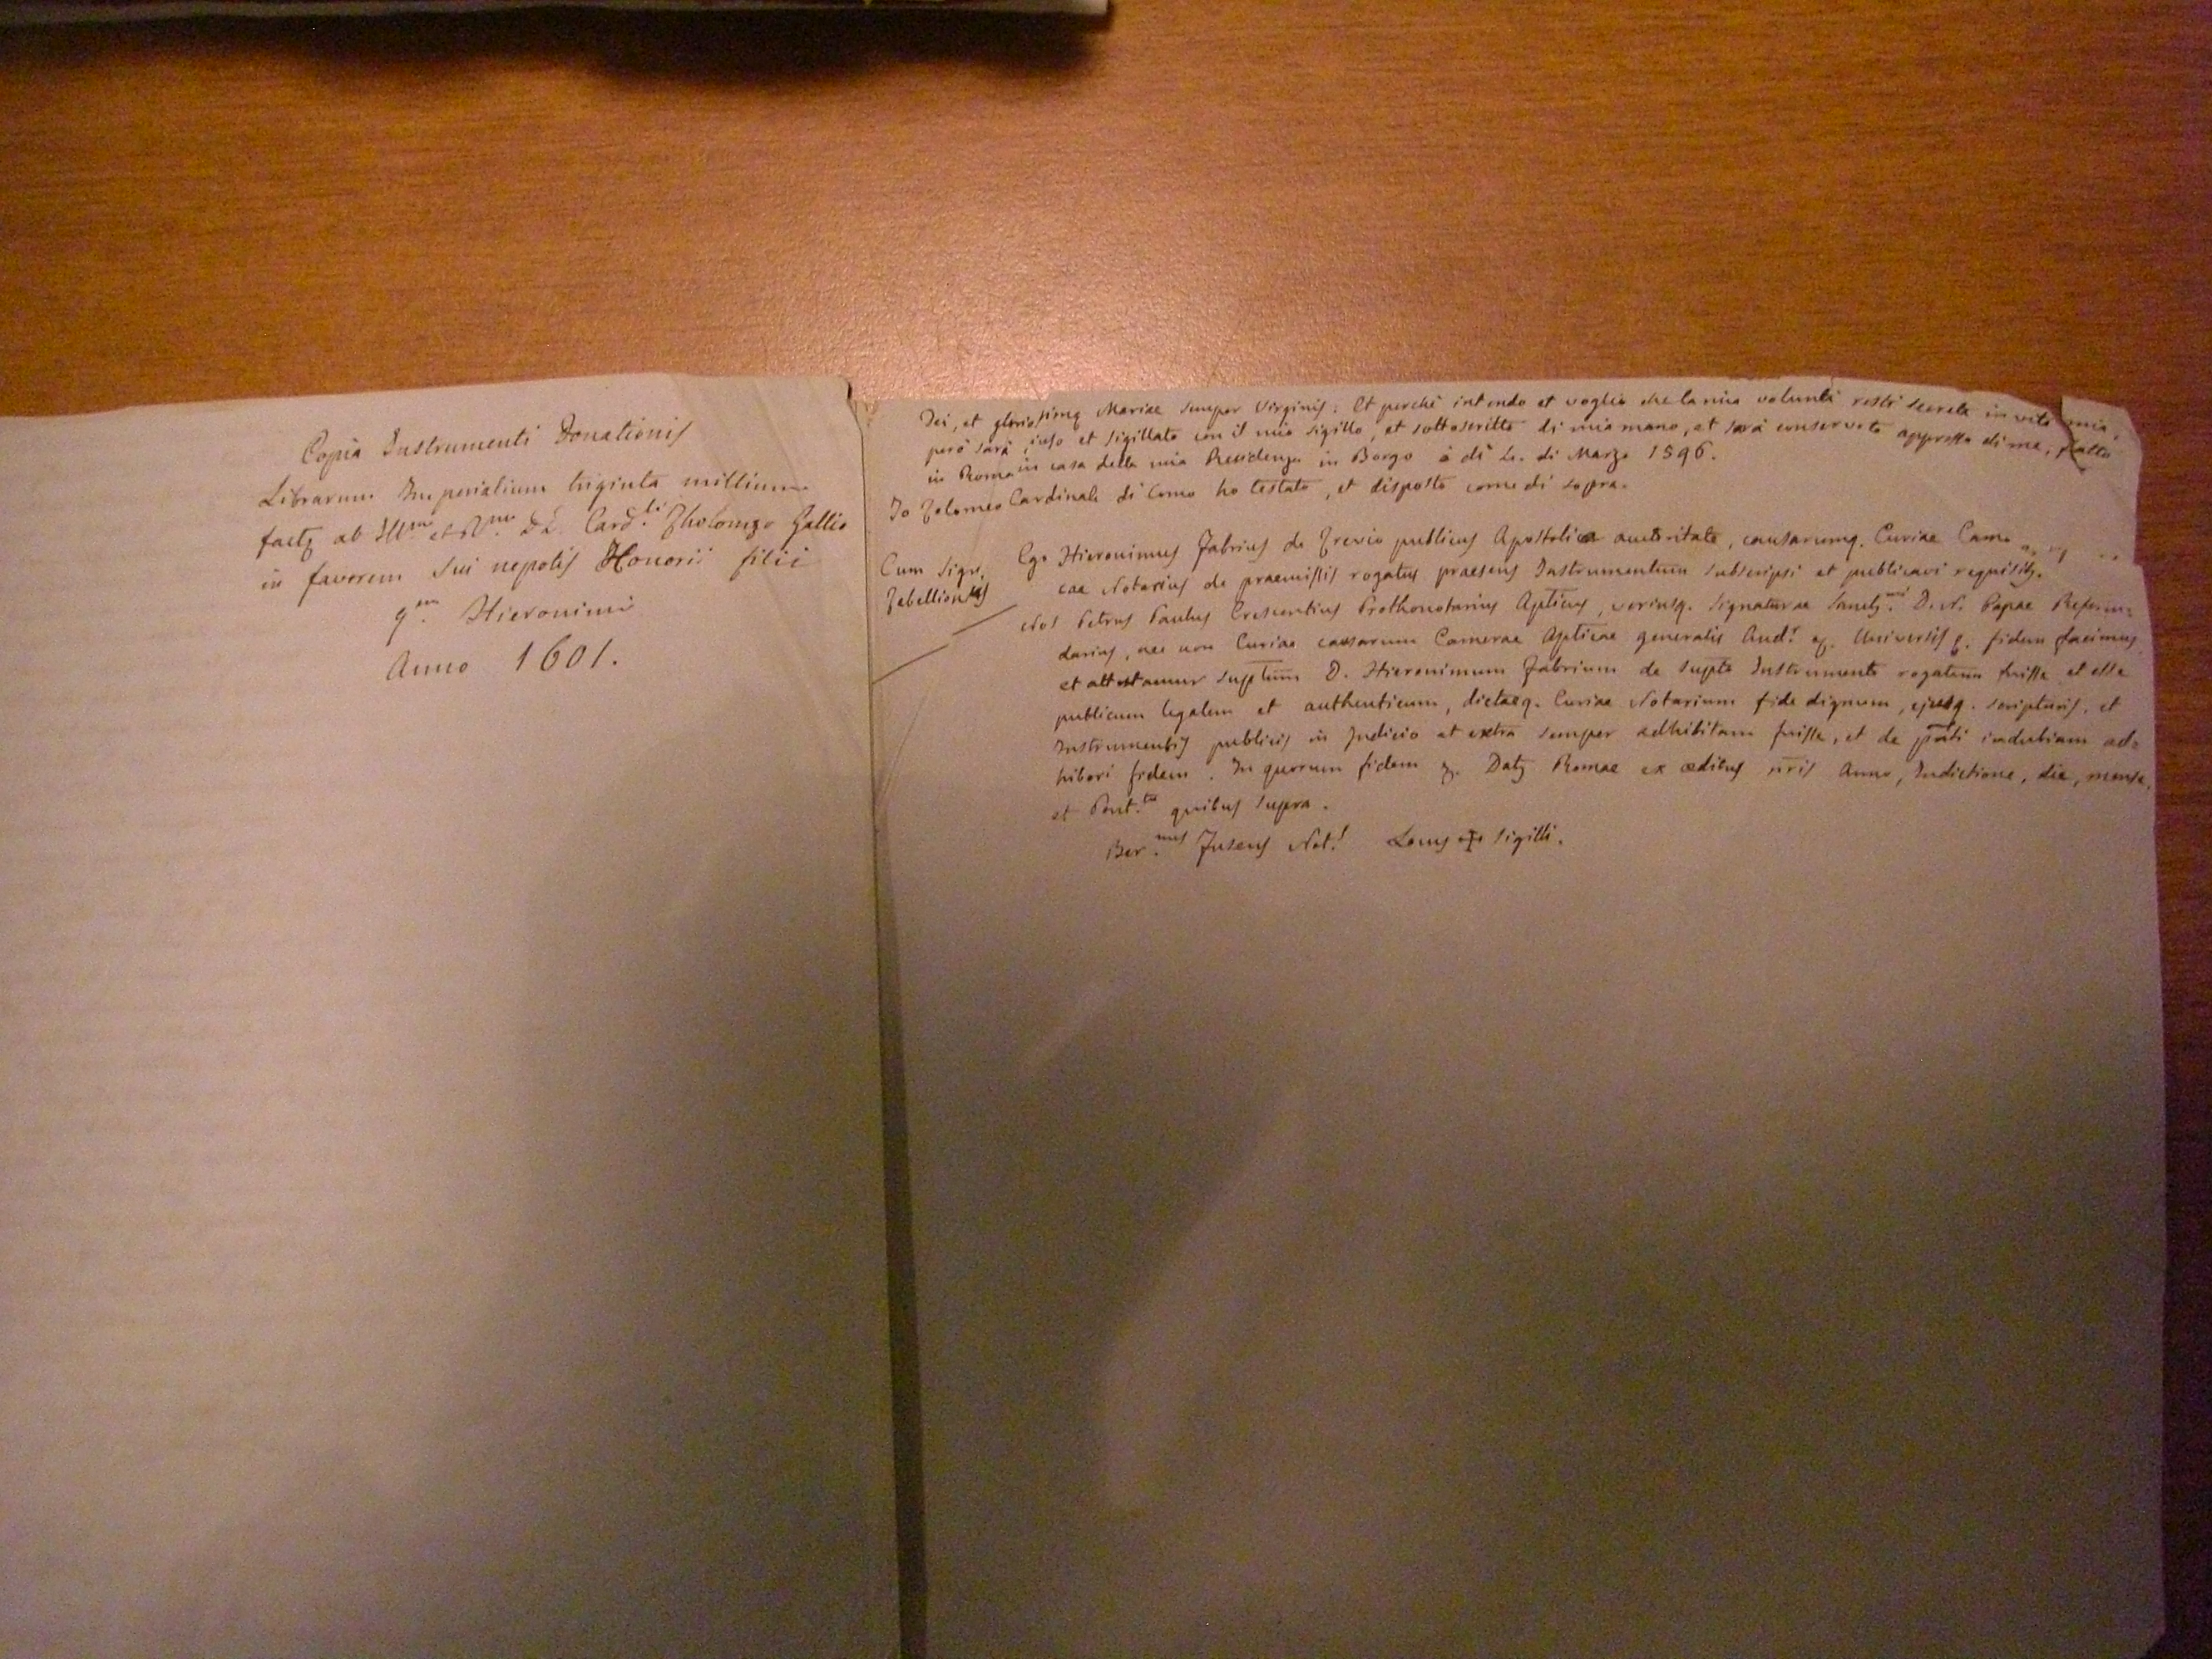 Copia Instrumenti Donationis
Librarum Imperialium triginta millium
factę ab Ill.mo et R.mo D.D. Card.li Ptholomęo Gallio
in favorem sui nepotis Honorii filii
q.m Hieronimi
Anno 1601.
Dei, et gloriosissimę Mariae semper Virginis: Et perché intendo et voglio che la mia voluntà resti secreta in vita mia,
però sarà et sigillato con il mio sigillo, et sottoscritto di mia mano, et sarà conservato appresso di me, fatto
in Roma in casa della mia Residenza in Borgo à di di Marzo 1596.
Io Tolomeo Cardinale di Como ho testato, et disposto come di sopra.
Cum Sign.
Tabellionatus
Ego Hieronimus Fabrius de Trevio publicus Apostolica auctoritate, causarumq. Curiae Came
cae Notarius de praemissis rogatus praesens Instrumentum subscripsi et publicavi requisitus.
Nos Petrus Paulus Crescentius Prothonotarius Apticus, utriusq. signaturae Sanctis.mi D.N. Papae Referen=
darius, nec non Curiae causarum Camerae Apticae generalis Aud.r Universis fidem facimus
et attestamur supttum D. Hieronimum Fabrium de suptto Instrumento rogatum fuisse et esse
publicum legalem et authenticum, dictaeq. Curiae Notarium fide dignum, ejusq. scripturis, et
Instrumentis publicis in Judicio et extra semper adhibitam fuisse, et de pnti indubiam ad=
hiberi fidem. In quorum fidem Datę Romae ex aedibus nris Anno, Indictione, die, mense,
et Pont.tu quibus supra.
Ber.nus Fuscus Not.s Locus ✠ sigilli.